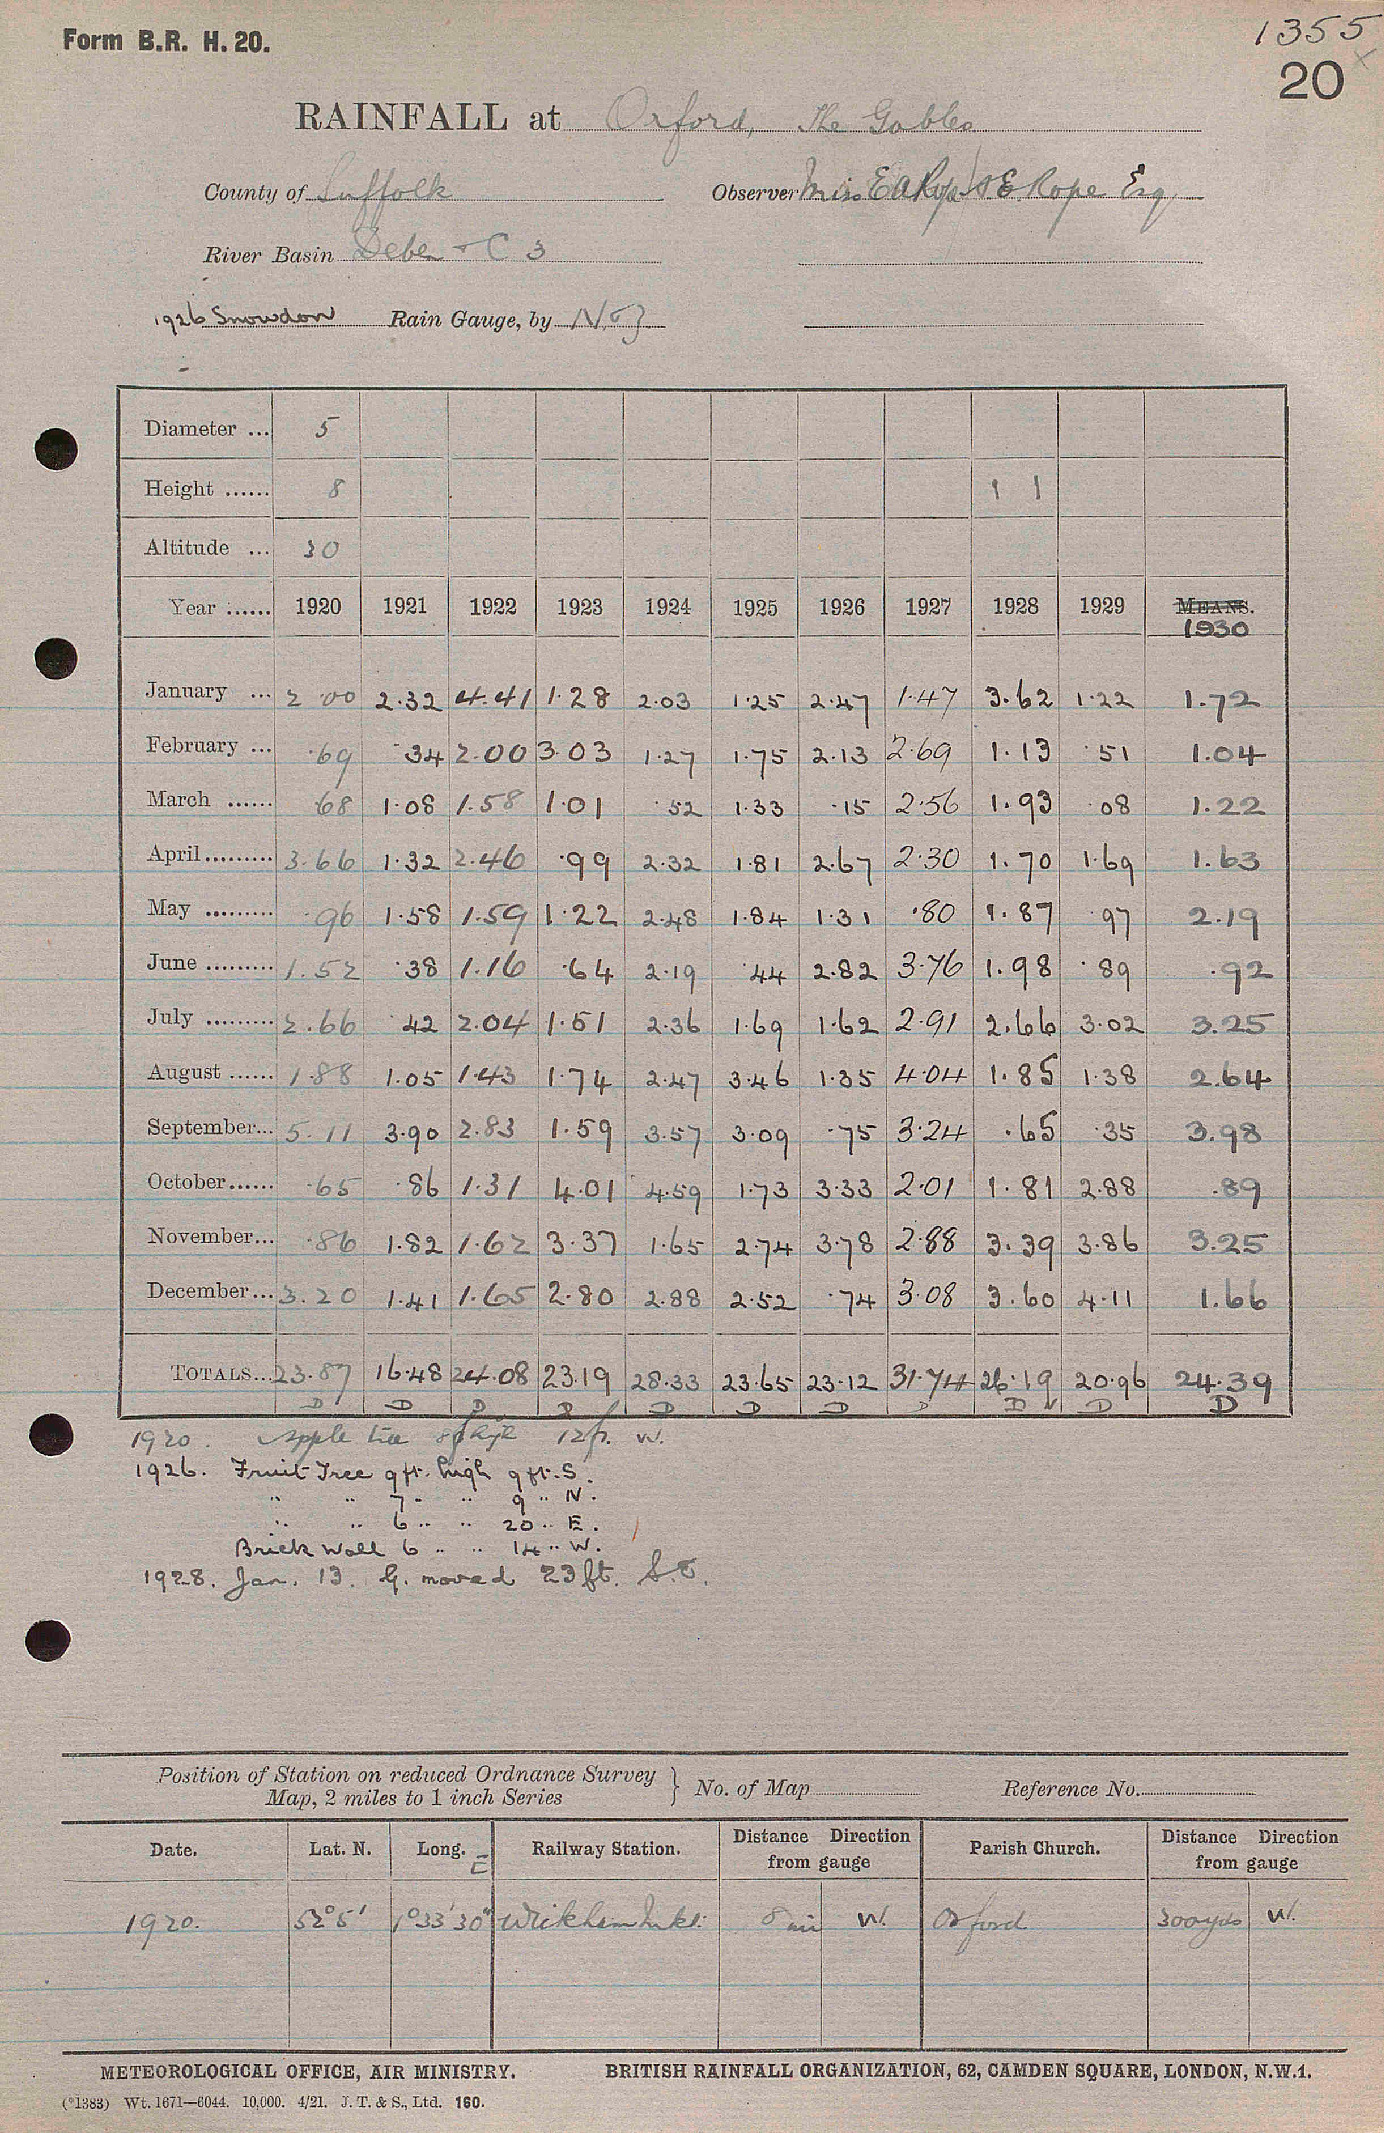 Form B.R. H. 20.
1355
20
RAINFALL at Orford, The Gables
County of Suffolk Observer Miss E A Rope / A E Rope Esq
River Basin Deben + C 3
1926 Snowdon Rain Gauge, by N & Z
Diameter ... 5
Height ...... 8 1 1
Altitude ... 30
Year ...... 1920 1921 1922 1923 1924 1925 1926 1927 1928 1929 MEANS.
1930
January ... 2.00 2.32 4.41 1.28 2.03 1.25 2.47 1.47 3.62 1.22 1.72
February ... .69 .34 2.00 3.03 1.27 1.75 2.13 2.69 1.13 .51 1.04
March ...... .68 1.08 1.58 1.01 .52 1.33 .15 2.56 1.93 .08 1.22
April ......... 3.66 1.32 2.46 .99 2.32 1.81 2.67 2.30 1.70 1.69 1.63
May ......... .96 1.58 1.59 1.22 2.48 1.84 1.31 .80 1.87 .97 2.19
June ......... 1.52 .38 1.16 .64 2.19 .44 2.82 3.76 1.98 .89 .92
July ......... 2.66 .42 2.04 1.51 2.36 1.69 1.62 2.91 2.66 3.02 3.25
August ...... 1.88 1.05 1.43 1.74 2.47 3.46 1.35 4.04 1.85 1.38 2.64
September... 5.11 3.90 2.83 1.59 3.57 3.09 .75 3.24 .65 .35 3.98
October...... .65 .86 1.31 4.01 4.59 1.73 3.33 2.01 1.81 2.88 .89
November... .86 1.82 1.62 3.37 1.65 2.74 3.78 2.88 3.39 3.86 3.25
December... 3.20 1.41 1.65 2.80 2.88 2.52 .74 3.08 3.60 4.11 1.66
TOTALS... 23.87 16.48 24.08 23.19 28.33 23.65 23.12 31.74 26.19 20.96 24.39
D D D D D D D D D D D
1920. Apple tree 8ft high 12ft. W.
1926. Fruit Tree 9 ft. high 9 ft. S.
" " 7 " " 9 " N.
" " 6 " " 20 " E.
Brick Wall 6 " " 14 " W.
1928. Jan. 13. G. moved 23 ft. S.E.
Position of Station on reduced Ordnance Survey
Map, 2 miles to 1 inch Series } No. of Map Reference No.
Date. Lat. N. Long. E Railway Station. Distance Direction from gauge Parish Church. Distance Direction from gauge
1920. 52°5' 1°33'30" Wickham Mkt. 8 mi W. Orford 300 yds W.
METEOROLOGICAL OFFICE, AIR MINISTRY. BRITISH RAINFALL ORGANIZATION, 62, CAMDEN SQUARE, LONDON, N.W.1.
(*1383) Wt. 1671—6044. 10,000. 4/21. J. T. & S., Ltd. 160.